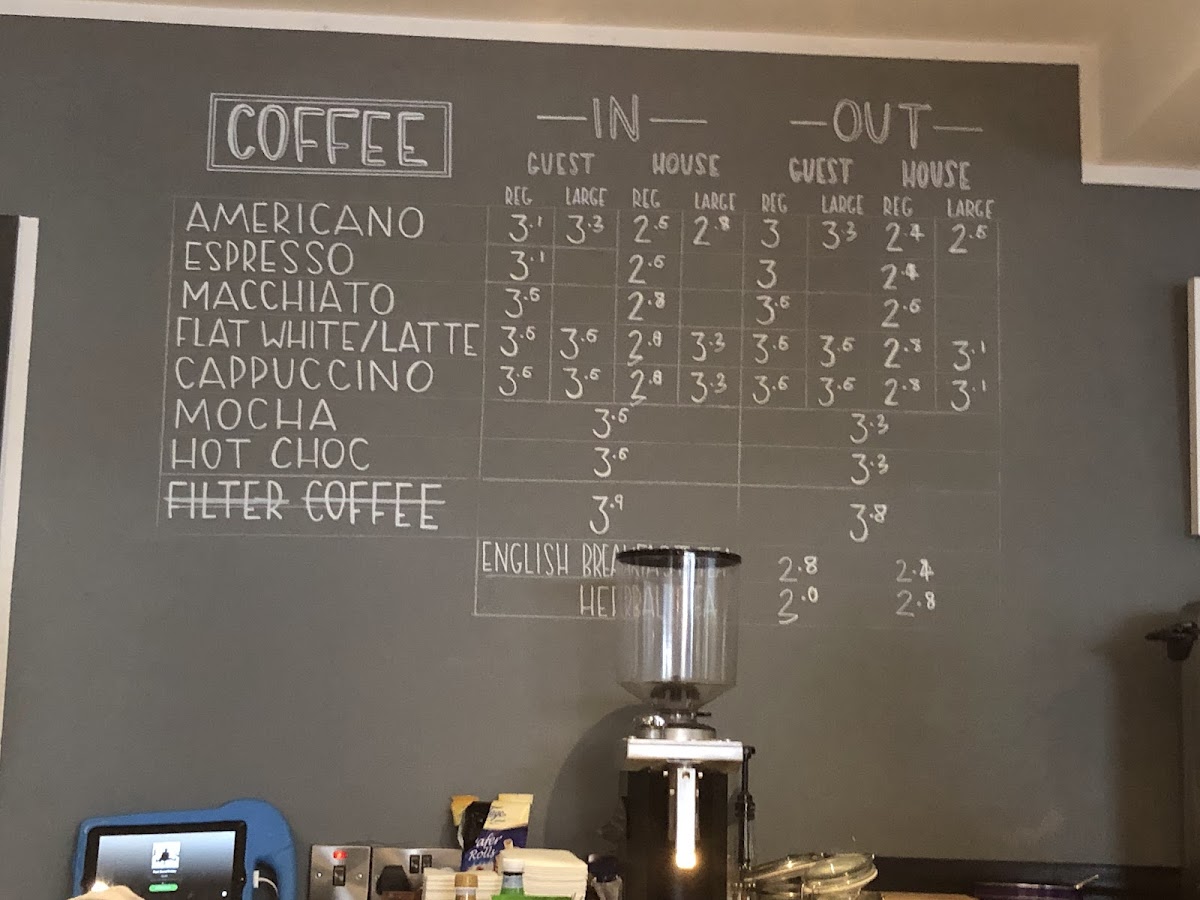 COFFEE —IN— —OUT—
GUEST HOUSE GUEST HOUSE
REG LARGE REG LARGE REG LARGE REG LARGE
AMERICANO 3.1 3.3 2.6 2.8 3 3.3 2.4 2.6
ESPRESSO 3.1 2.6 3 2.4
MACCHIATO 3.6 2.8 3.6 2.6
FLAT WHITE/LATTE 3.6 3.6 2.8 3.3 3.6 3.6 2.8 3.1
CAPPUCCINO 3.6 3.6 2.8 3.3 3.6 3.6 2.8 3.1
MOCHA 3.6 3.3
HOT CHOC 3.6 3.3
FILTER COFFEE 3.9 3.8
ENGLISH BREAKFAST TEA 2.8 2.4
HERBAL TEA 3.0 2.8
Wafer
Rolls